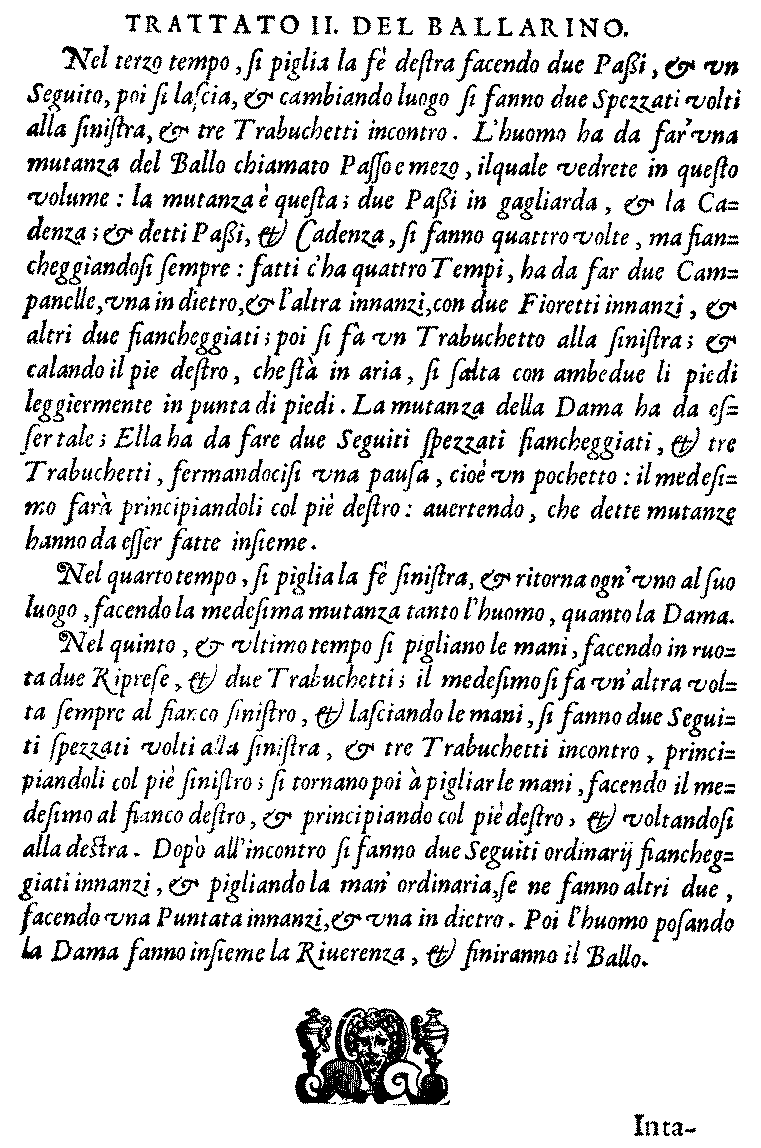 TRATTATO II. DEL BALLARINO.
Nel terzo tempo, ſi piglia la fè deſtra facendo due Paßi, & vn
Seguito, poi ſi laſcia, & cambiando luogo ſi fanno due Spezzati volti
alla ſiniſtra, & tre Trabuchetti incontro. L'huomo ha da far' vna
mutanza del Ballo chiamato Paſſo e mezo, ilquale vedrete in queſto
volume: la mutanza è queſta; due Paßi in gagliarda, & la Ca=
denza; & detti Paßi, & Cadenza, ſi fanno quattro volte, ma fian=
cheggiandoſi ſempre: fatti c'ha quattro Tempi, ha da far due Cam=
panelle, vna in dietro, & l'altra innanzi, con due Fioretti innanzi, &
altri due fiancheggiati; poi ſi fà vn Trabuchetto alla ſiniſtra; &
calando il pie deſtro, che ſtà in aria, ſi ſalta con ambedue li piedi
leggiermente in punta di piedi. La mutanza della Dama ha da eſ=
ſer tale; Ella ha da fare due Seguiti ſpezzati fiancheggiati, & tre
Trabuchetti, fermandociſi vna pauſa, cioè vn pochetto: il medeſi=
mo farà principiandoli col piè deſtro: auertendo, che dette mutanze
hanno da eſſer fatte inſieme.
Nel quarto tempo, ſi piglia la fè ſiniſtra, & ritorna ogn'vno al ſuo
luogo, facendo la medeſima mutanza tanto l'huomo, quanto la Dama.
Nel quinto, & vltimo tempo ſi pigliano le mani, facendo in ruo=
ta due Ripreſe, & due Trabuchetti; il medeſimo ſi fa vn'altra vol=
ta ſempre al fianco ſiniſtro, & laſciando le mani, ſi fanno due Segui=
ti ſpezzati volti alla ſiniſtra, & tre Trabuchetti incontro, princi=
piandoli col piè ſiniſtro; ſi tornano poi à pigliar le mani, facendo il me=
deſimo al fianco deſtro, & principiando col piè deſtro, & voltandoſi
alla deſtra. Dopò all'incontro ſi fanno due Seguiti ordinarij fiancheg=
giati innanzi, & pigliando la man' ordinaria, ſe ne fanno altri due,
facendo vna Puntata innanzi, & vna in dietro. Poi l'huomo poſando
la Dama fanno inſieme la Riuerenza, & finiranno il Ballo.
Inta-